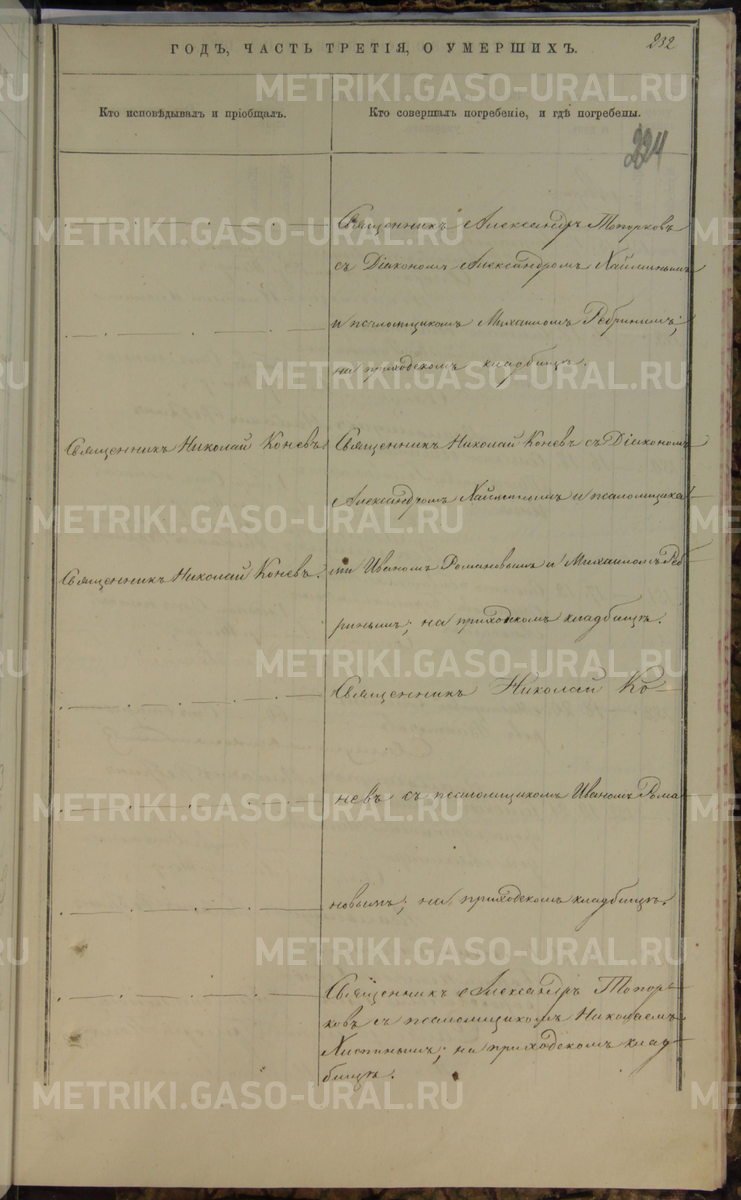 ГОДЪ, ЧАСТЬ ТРЕТІЯ, О УМЕРШИХЪ.
232
Кто исповѣдывалъ и пріобщалъ.
Кто совершалъ погребеніе, и гдѣ погребены.
224
Священникъ Александръ Топорковъ
съ Діакономъ Александромъ
и псаломщикомъ Михаиломъ Ребринымъ;
на приходскомъ кладбищѣ.
Священникъ Николай Коневъ.
Священникъ Николай Коневъ съ Діакономъ
Александромъ и псаломщика-
Священникъ Николай Коневъ.
ми Иваномъ Романовымъ и Михаиломъ Реб-
ринымъ; на приходскомъ кладбищѣ.
Священникъ Николай Ко-
невъ съ псаломщикомъ Иваномъ Рома-
новымъ; на приходскомъ кладбищѣ.
Священникъ Александръ Топор-
ковъ съ псаломщикомъ Николаемъ
на приходскомъ клад-
бищѣ.
METRIKI.GASO-URAL.RU